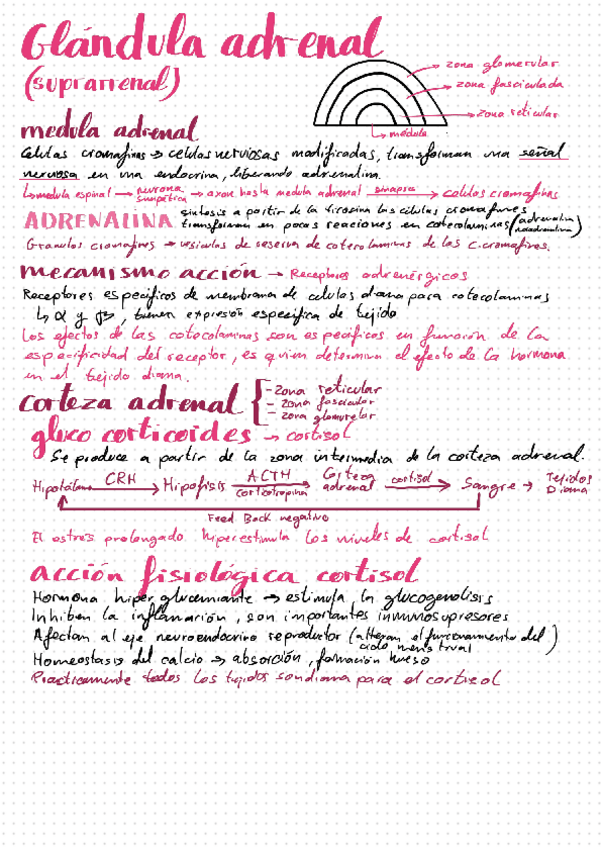 Glándula adrenal
(suprarrenal)
zona glomerular
zona fasciculada
zona reticular
médula
medula adrenal
Celulas cromafinas → celulas nerviosas modificadas, transforman una señal
nerviosa en una endocrina, liberando adrenalina.
↳ medula espinal → neurona simpática → axon hasta medula adrenal sinapsis → celulas cromafinas
ADRENALINA sintesis a partir de la tirosina las células cromafines
transforman en pocas reaciones en catecolaminas (adrenalina/noradrenalina)
Granulos cromafines → vesiculas de reserva de catecolaminas de las c.cromafines.
mecanismo acción → Receptores adrenérgicos
Receptores especificos de membrana de celulas diana para catecolaminas
↳ α y β, tienen expresión especifica de tejido
Los efectos de las catecolaminas son especificos en función de la
especificidad del receptor, es quien determina el efecto de la hormona
en el tejido diana.
corteza adrenal { - zona reticular
- zona fascicular
- zona glomurelar
glucocorticoides → cortisol
Se produce a partir de la zona intermedia de la corteza adrenal.
Hipotálamo CRH → Hipofisis ACTH corticotropina → Corteza adrenal cortisol → Sangre → Tejidos Diana
Feed Back negativo
El estrés prolongado hiperestimula los niveles de cortisol
acción fisiológica cortisol
Hormona hiperglucemiante → estimula la glucogenolisis
Inhiben la inflamación, son importantes inmunosupresores
Afectan al eje neuroendocrino reproductor (alteran el funcionamiento del ciclo menstrual)
Homeostasis del calcio → absorción, formación hueso
Practicamente todos los tejidos son diana para el cortisol